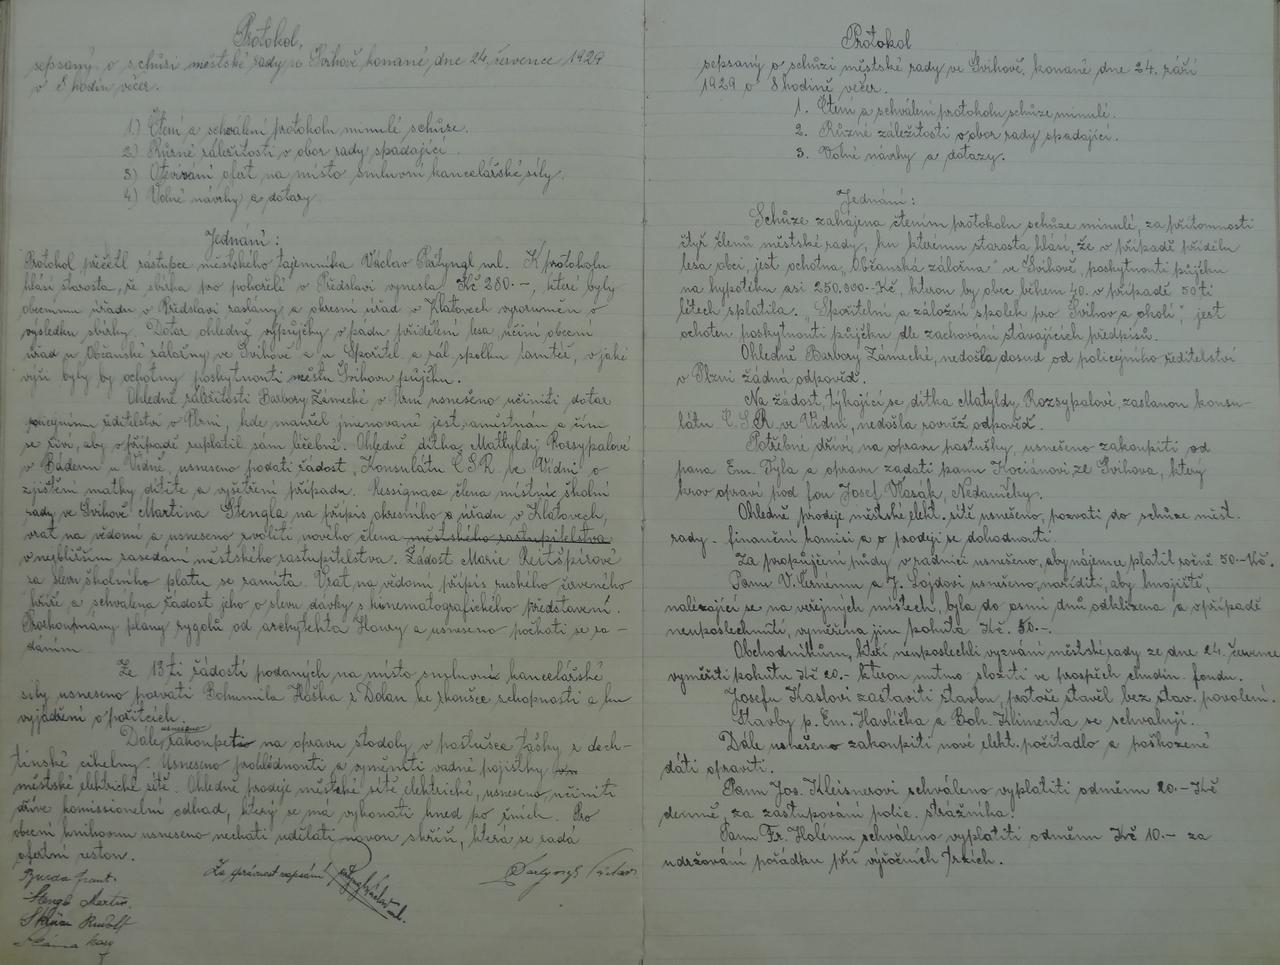 Protokol,
sepsaný o schůzi městské rady ve Švihově konané dne 24. července 1929
v 8 hodin večer.
1) Čtení a schválení protokolu minulé schůze.
2) Různé záležitosti v obor rady spadající.
3) Otevírání ofert na místo smluvní kancelářské síly.
4) Volné návrhy a dotazy.
Jednání:
Protokol přečetl zástupce městského tajemníka Václav Partyngl ml. K protokolu
hlásí starosta, že sbírka pro pohořelé v Předslavi vynesla Kč 280.-, které byly
obecnímu úřadu v Předslavi zaslány a okresní úřad v Klatovech vyrozuměn o
výsledku sbírky. Dotaz ohledně výpůjčky v padu přidělení lesa, učiní obecní
úřad u Občanské záložny ve Švihově a u Spořitel. a zál. spolku tamtéž, v jaké
výši byly by ochotny poskytnouti městu Švihovu půjčku.
Ohledně záležitosti Barbory Zámecké v Plzni usneseno učiniti dotaz
policejnímu ředitelství v Plzni, kde manžel jmenované jest zaměstnán a čím
se živí, aby v případě zaplatil sám léčební. Ohledně dítka, Mathyldy Rozsypalové
v Bádenu u Vídně, usneseno podati žádost, Konsulátu Č.S.R. ve Vídni o
zjištění matky dítěte a vyšetření případu. Ressignace člena místní školní
rady ve Švihově Martina Stengla na přípis okresního úřadu v Klatovech,
vzat na vědomí a usneseno zvoliti nového člena městského zastupitelstva
v nejbližším zasedání městského zastupitelstva. Žádost Marie Reitšpírové
za slevu školního platu se zamítá. Vzat na vědomí přípis ruského červeného
kříže a schválena žádost jeho o slevu dávky s kinematografického představení.
Prozkoumány plány rygolů od architekta Houry a usneseno počkati se za-
dáním.
Ze 13ti žádostí podaných na místo smluvní kancelářské
síly usneseno pozvati Bohumila Haška z Dolan ke zkoušce schopnosti a ku
vyjádření o požitcích.
Dále usneseno zakoupeti na opravu stodoly v pastušce tašky z dech-
tinské cihelny. Usneseno prohlédnouti a vyměniti vadné pojistky
městské elektrické sítě. Ohledně prodeje městské sítě elektrické, usneseno, učiniti
dříve komissionelní odhad, který se má vykonati hned po žních. Pro
obecní knihovnu usneseno nechati udělati novou skříň, která se zadá
ofertní cestou.
Burda Frant.
Za správnost zapsání: Partyngl Václav ml.
Partyngl Václav
Stengl Martin
Rudolf
Protokol
sepsaný o schůzi městské rady ve Švihově, konané dne 24. září
1929 o 8 hodině večer.
1. Čtení a schválení protokolu schůze minulé.
2. Různé záležitosti v obor rady spadající.
3. Volné návrhy a dotazy.
Jednání:
Schůze zahájena čtením protokolu schůze minulé, za přítomnosti
čtyř členů městské rady, ku kterému starosta hlásí, že v případě přídělu
lesa obci, jest ochotna "Občanská záložna" ve Švihově, poskytnouti půjčku
na hypotéku asi 250.000-Kč, kterou by obec během 40. v případě 50ti
létech splatila. "Spořitelní a záložní spolek pro Švihov a okolí", jest
ochoten poskytnouti půjčku dle zachování stávajících předpisů.
Ohledně Barbory Zámecké, nedošla dosud od policejního ředitelství
v Plzni žádná odpověď.
Na žádost, týkající se dítka Matyldy Rozsypalové, zaslanou konsu-
látu Č.S.R. ve Vídni, nedošla rovněž odpověď.
Potřebné dříví, na opravu pastušky, usneseno zakoupiti od
pana Em. Týla a opravu zadati panu Kociánovi, ze Švihova, který
krov opraví pod fou Josef Vlasák, Nedaničky.
Ohledně prodeje městské elekt. sítě usneseno, pozvati do schůze měst.
rady - finanční komisi a o prodeji se dohodnouti.
Za propůjčení půdy v radnici usneseno, aby nájemce platil ročně 50.-Kč.
Panu V. Černému a J. Lojdovi usneseno, naříditi, aby hnojiště,
nalézající se na veřejných místech, byla do osmi dnů odklizena a v případě
neuposlechnutí, vyměřena jim pokuta Kč. 50.-.
Obchodníkům, kteří neuposlechli vyzvání městské rady ze dne 24. července
vyměřiti pokutu Kč 20.- kterou nutno složiti ve prospěch chudin. fondu.
Josefu Kaslovi zastaviti stavbu, protože stavěl bez stav. povolení.
Stavby p. Em. Havlíčka a Boh. Klimenta se schvalují.
Dále usneseno zakoupiti nové elekt. počítadlo a poškozené
dáti opraviti.
Panu Jos. Kleisnerovi schváleno vyplatiti odměnu 20.- Kč
denně, za zastupování polic. strážníka.
Panu Fr. Holému schváleno vyplatiti odměnu Kč 10.- za
udržování pořádku při výročních trzích.